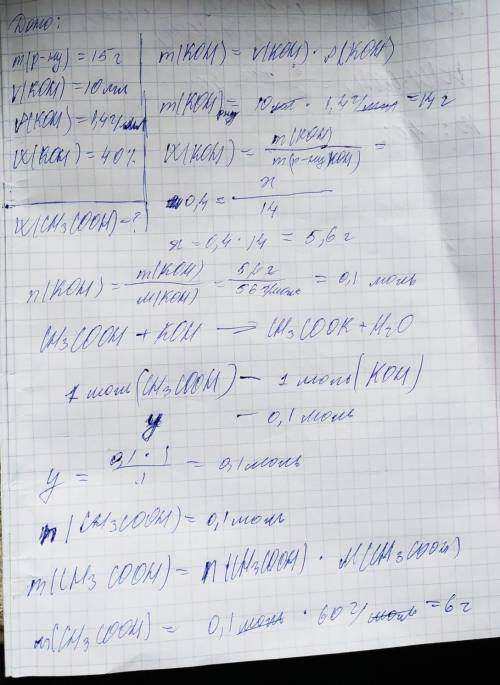 Дано:
m(р-ну) = 15 г
V(KOH) = 10 мл
ρ(KOH) = 1,4 г/мл
W(KOH) = 40%
W(CH3COOH) - ?
m(KOH) = V(KOH) · ρ(KOH)
m(KOH) р-ну = 10 мл · 1,4 г/мл = 14 г
W(KOH) = m(KOH) / m(р-ну KOH) =
0,4 = x / 14
x = 0,4 · 14 = 5,6 г
n(KOH) = m(KOH) / M(KOH) = 5,6 г / 56 г/моль = 0,1 моль
CH3COOH + KOH → CH3COOK + H2O
1 моль (CH3COOH) - 1 моль (KOH)
y - 0,1 моль
y = 0,1 · 1 / 1 = 0,1 моль
n(CH3COOH) = 0,1 моль
m(CH3COOH) = n(CH3COOH) · M(CH3COOH)
m(CH3COOH) = 0,1 моль · 60 г/моль = 6 г